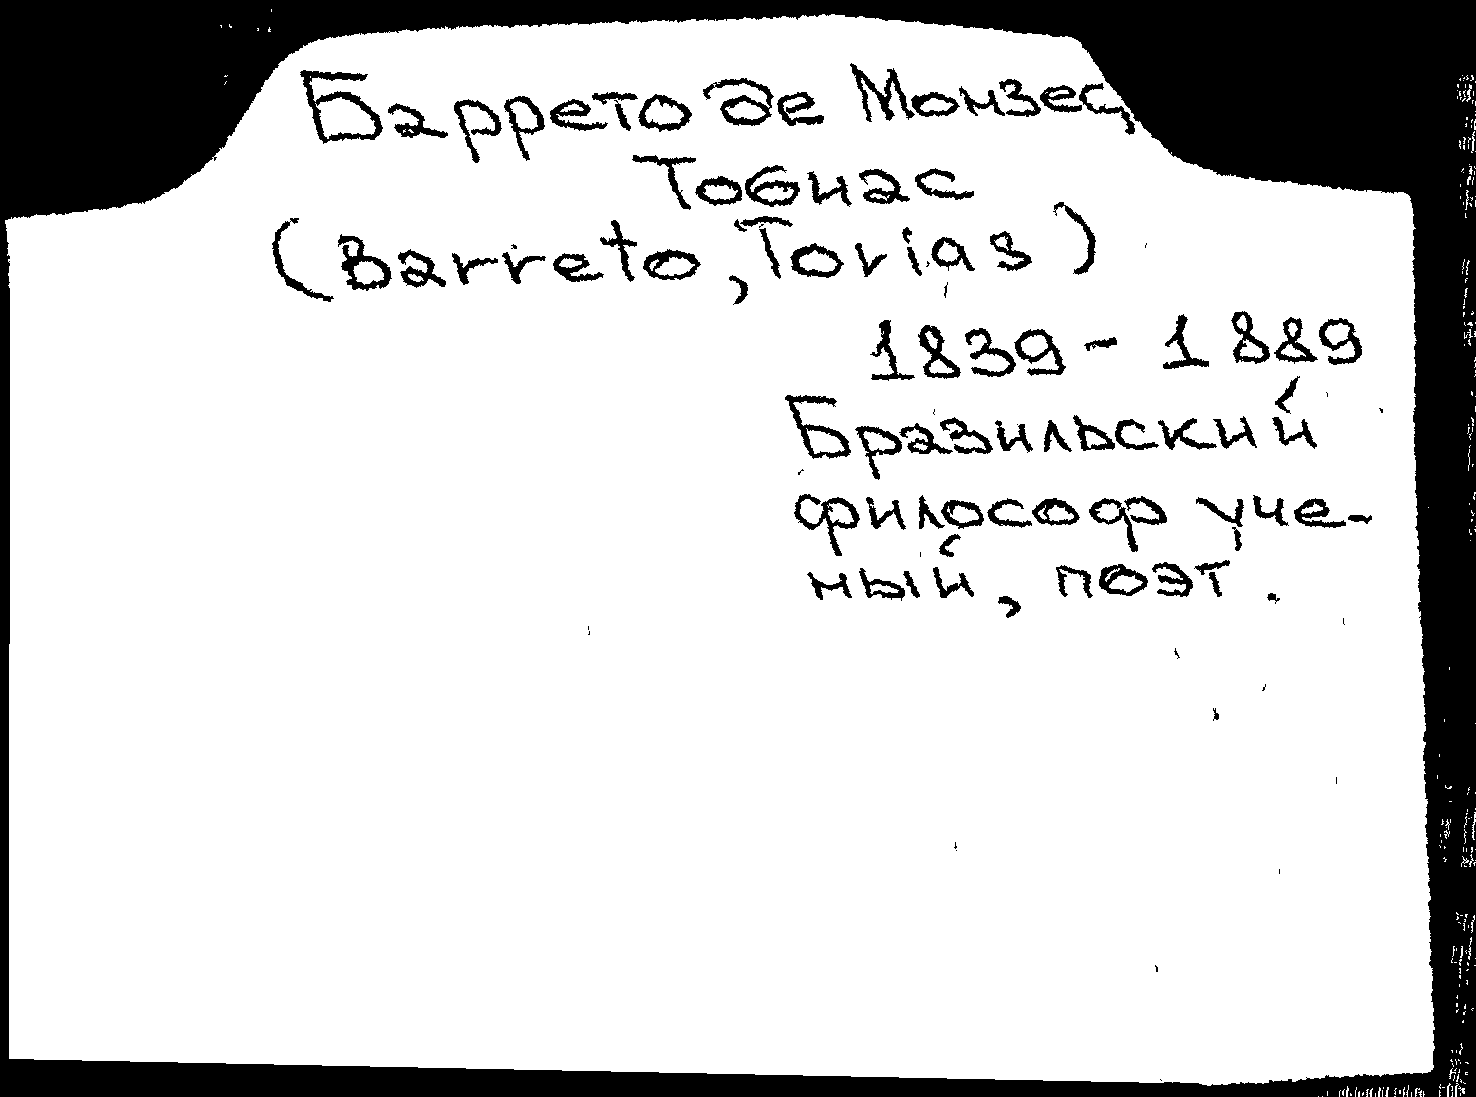 Баррето де Монзес,
Тобиас
(Barreto, Torias)
1839 - 1889
Бразильский
философ уче-
ный, поэт.